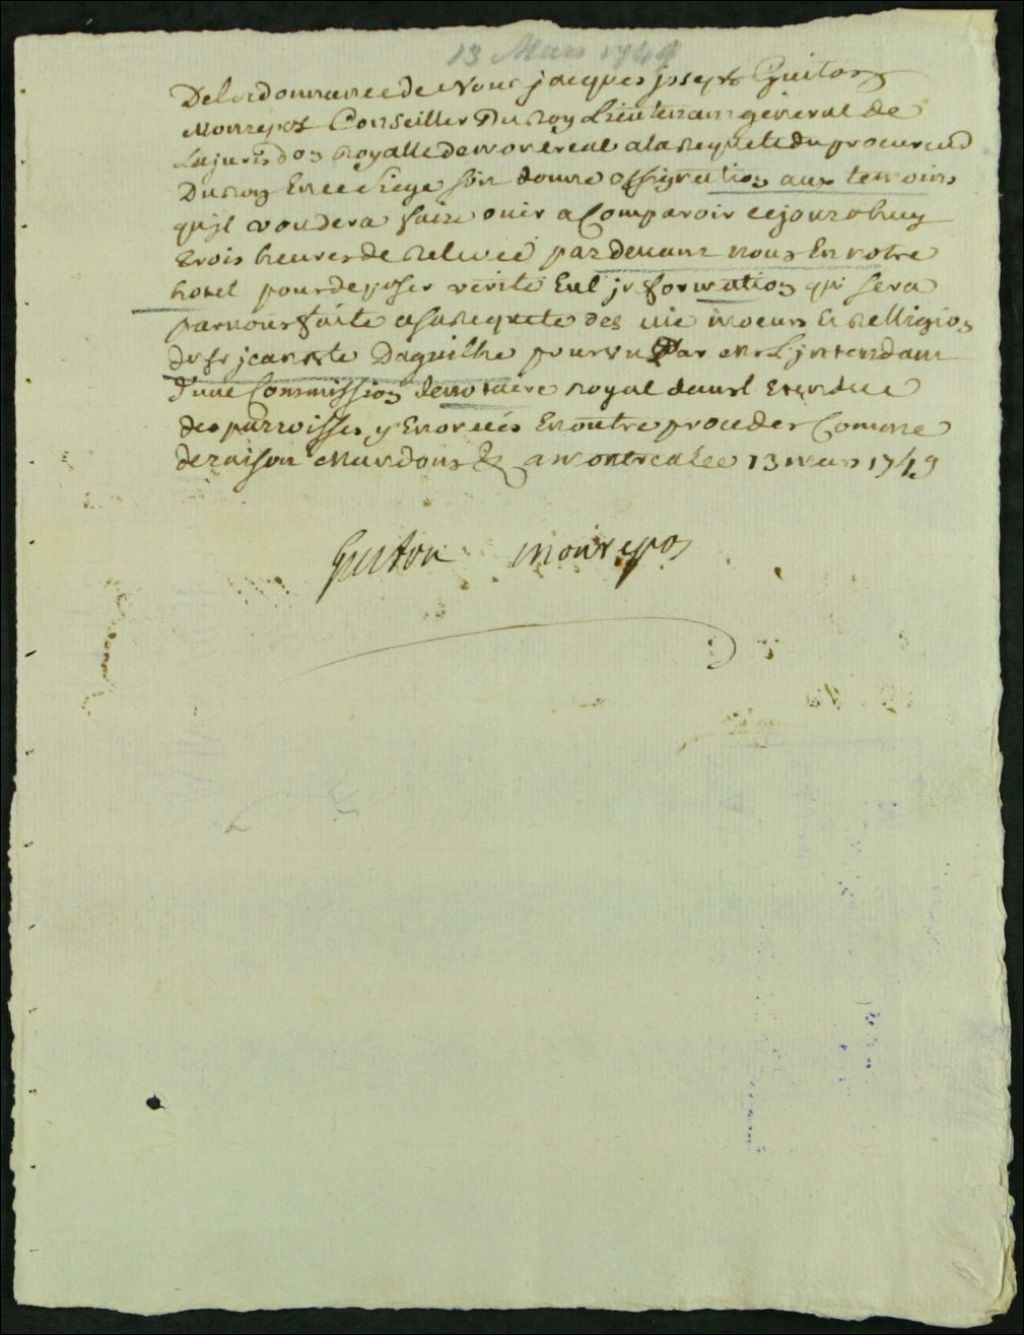 13 Mars 1749
De lordonnance de Nous jacques joseph Guiton
Monrepos Conseiller Du Roy Lieutenant general de
La jurisdon Royalle de montreal a la Requete du procureur
Du Roy En ce siege soit donné assignation aux temoins
qu'jl voudera faire ouir a Comparoir cejourdhuy
trois heures de Relevée pardevant nous En notre
hotel pour deposer verité En l'jnformation qui sera
par nous faite a sa Requete des vie moeurs et Relligion
du sr jean Bte Daguilhe pourvu Par mr L'jntendant
d'une Commission de notaire Royal dans l'Etendue
des parroisses y Enoncées En outre proceder Comme
de raison Mandons &c a montreal le 13 mars 1749
Guiton Monrepos